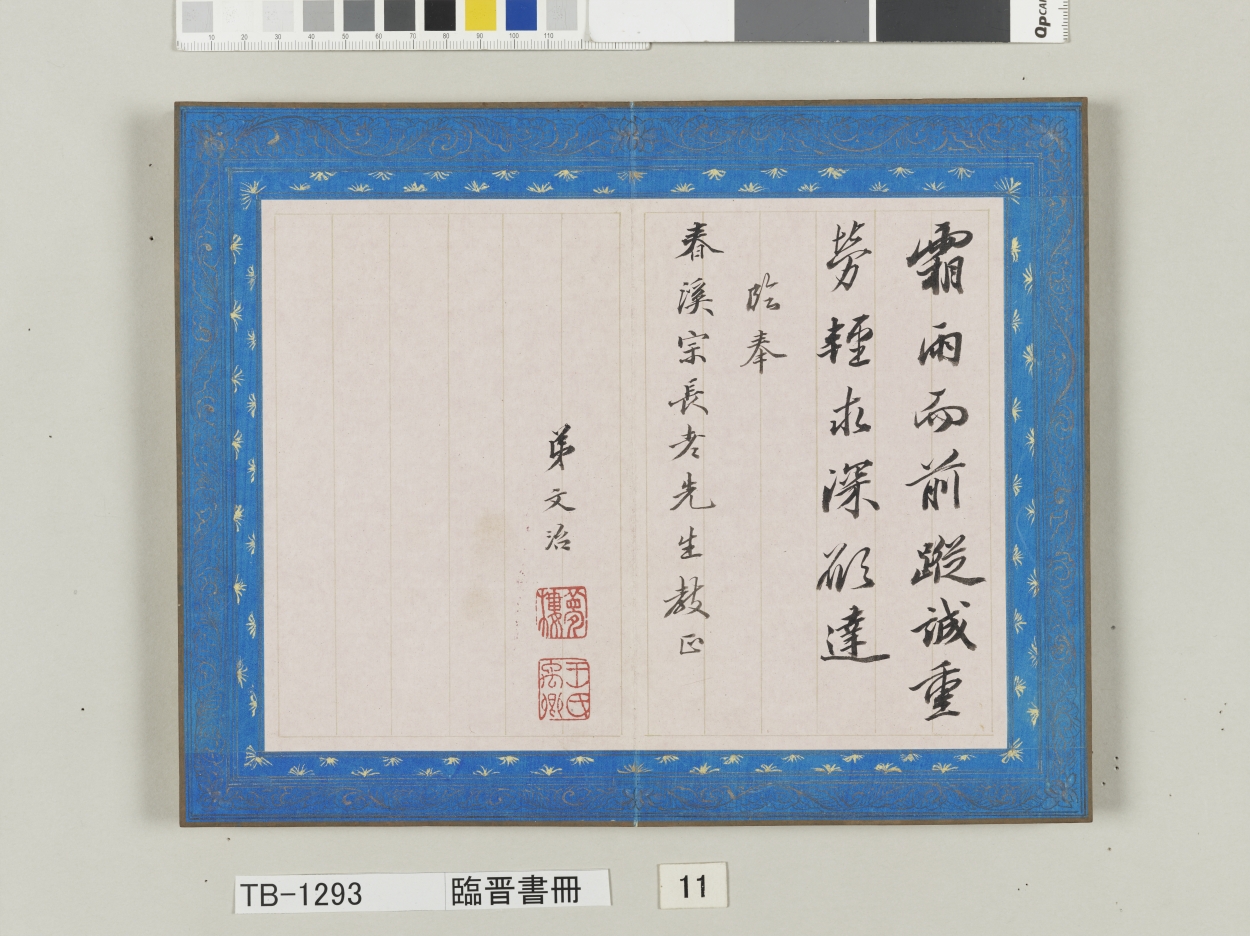 霜雨而前蹤誠重
勞輕求深願達
臨奉
春溪宗長老先生教正
弟文治
夢樓
王氏禹卿
TB-1293
臨晋書冊
11
10 20 30 40 50 60 70 80 90 100 110
QPCARD